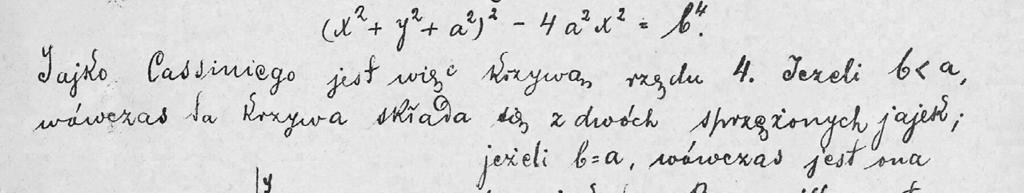 (x² + y² + a²)² - 4a²x² = b⁴.
Jajko Cassiniego jest więc krzywą rzędu 4. Jeżeli b < a,
wówczas ta krzywa składa się z dwóch sprzężonych jajek;
jeżeli b = a, wówczas jest ona
y